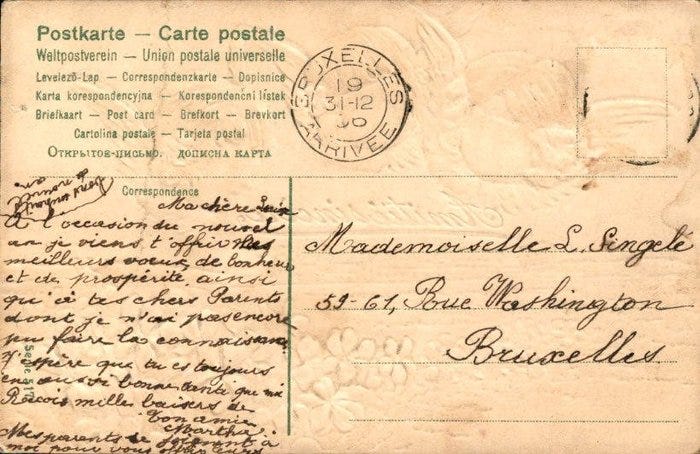 Postkarte — Carte postale
Weltpostverein — Union postale universelle
Levelező-Lap. — Correspondenzkarte — Dopisnice
Karta korespondencyjna — Korespondenční lístek
Briefkaart — Post card — Brefkort — Brevkort
Cartolina postale — Tarjeta postal
Открытое-письмо. дописна карта
BRUXELLES
19
31-12
06
ARRIVEE
Correspondence
Ma chère
A l'occasion du nouvel
an je viens t'offrir mes
meilleurs voeux de bonheur
et de prospérité, ainsi
qu'à tes chers Parents
dont je n'ai pas encore
pu faire la connaissance
J'espère que tu es toujours
en aussi bonne santé que moi
Reçois mille baisers de
Ton amie
Martha
Mes parents se joignent à
moi pour vous offrir
Mademoiselle L. Singelé
59-61, Rue Washington
Bruxelles
Serie